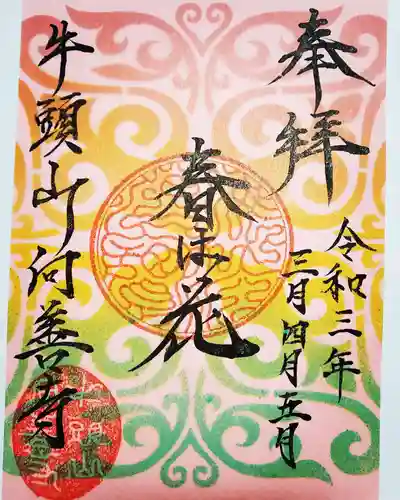 奉拝
令和三年
三月四月五月
春は花
牛頭山何善寺